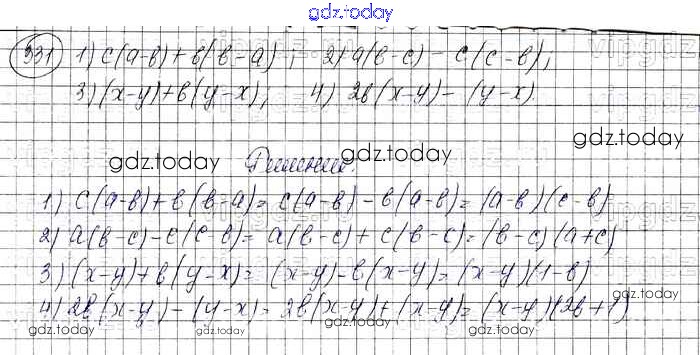 gdz.today
331 1) c(a-b)+b(b-a); 2) a(b-c)-c(c-b);
3) (x-y)+b(y-x); 4) 2b(x-y)-(y-x).
gdz.today
gdz.today Решение. gdz.today
1) c(a-b)+b(b-a)=c(a-b)-b(a-b)=(a-b)(c-b)
2) a(b-c)-c(c-b)=a(b-c)+c(b-c)=(b-c)(a+c)
3) (x-y)+b(y-x)=(x-y)-b(x-y)=(x-y)(1-b)
4) 2b(x-y)-(y-x)=2b(x-y)+(x-y)=(x-y)(2b+1)
gdz.today gdz.today gdz.today